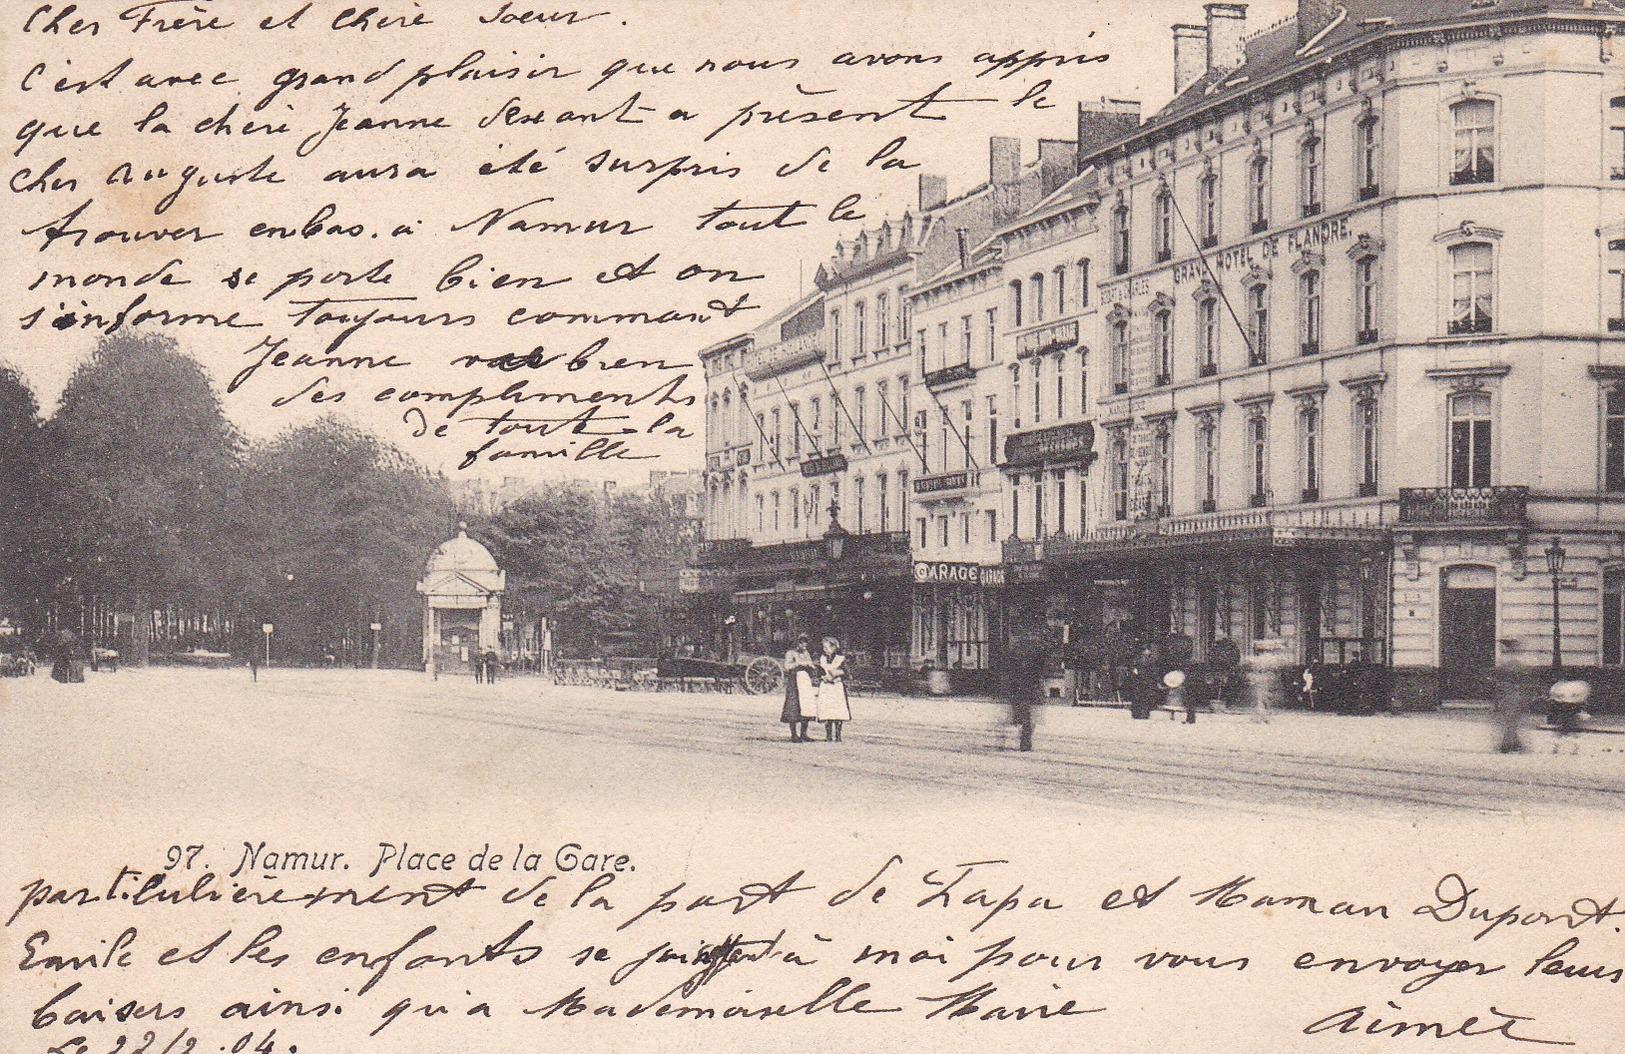 Cher Frère et chère Soeur.
C'est avec grand plaisir que nous avons appris
que la chère Jeanne a présent le
cher Auguste aura été surpris de la
trouver en bas. à Namur tout le
monde se porte bien et on
s'informe toujours commant
Jeanne va bien
des compliments
de toute la
famille
GRAND HOTEL DE FLANDRE.
GARAGE GARAGE
97. Namur. Place de la Gare.
partilulièrement de la part de Papa et Maman Dupont.
Emile et les enfants se à moi pour vous envoyer leurs
baisers ainsi qu'a Mademoiselle Marie
Aimée
Le 22/2.04.